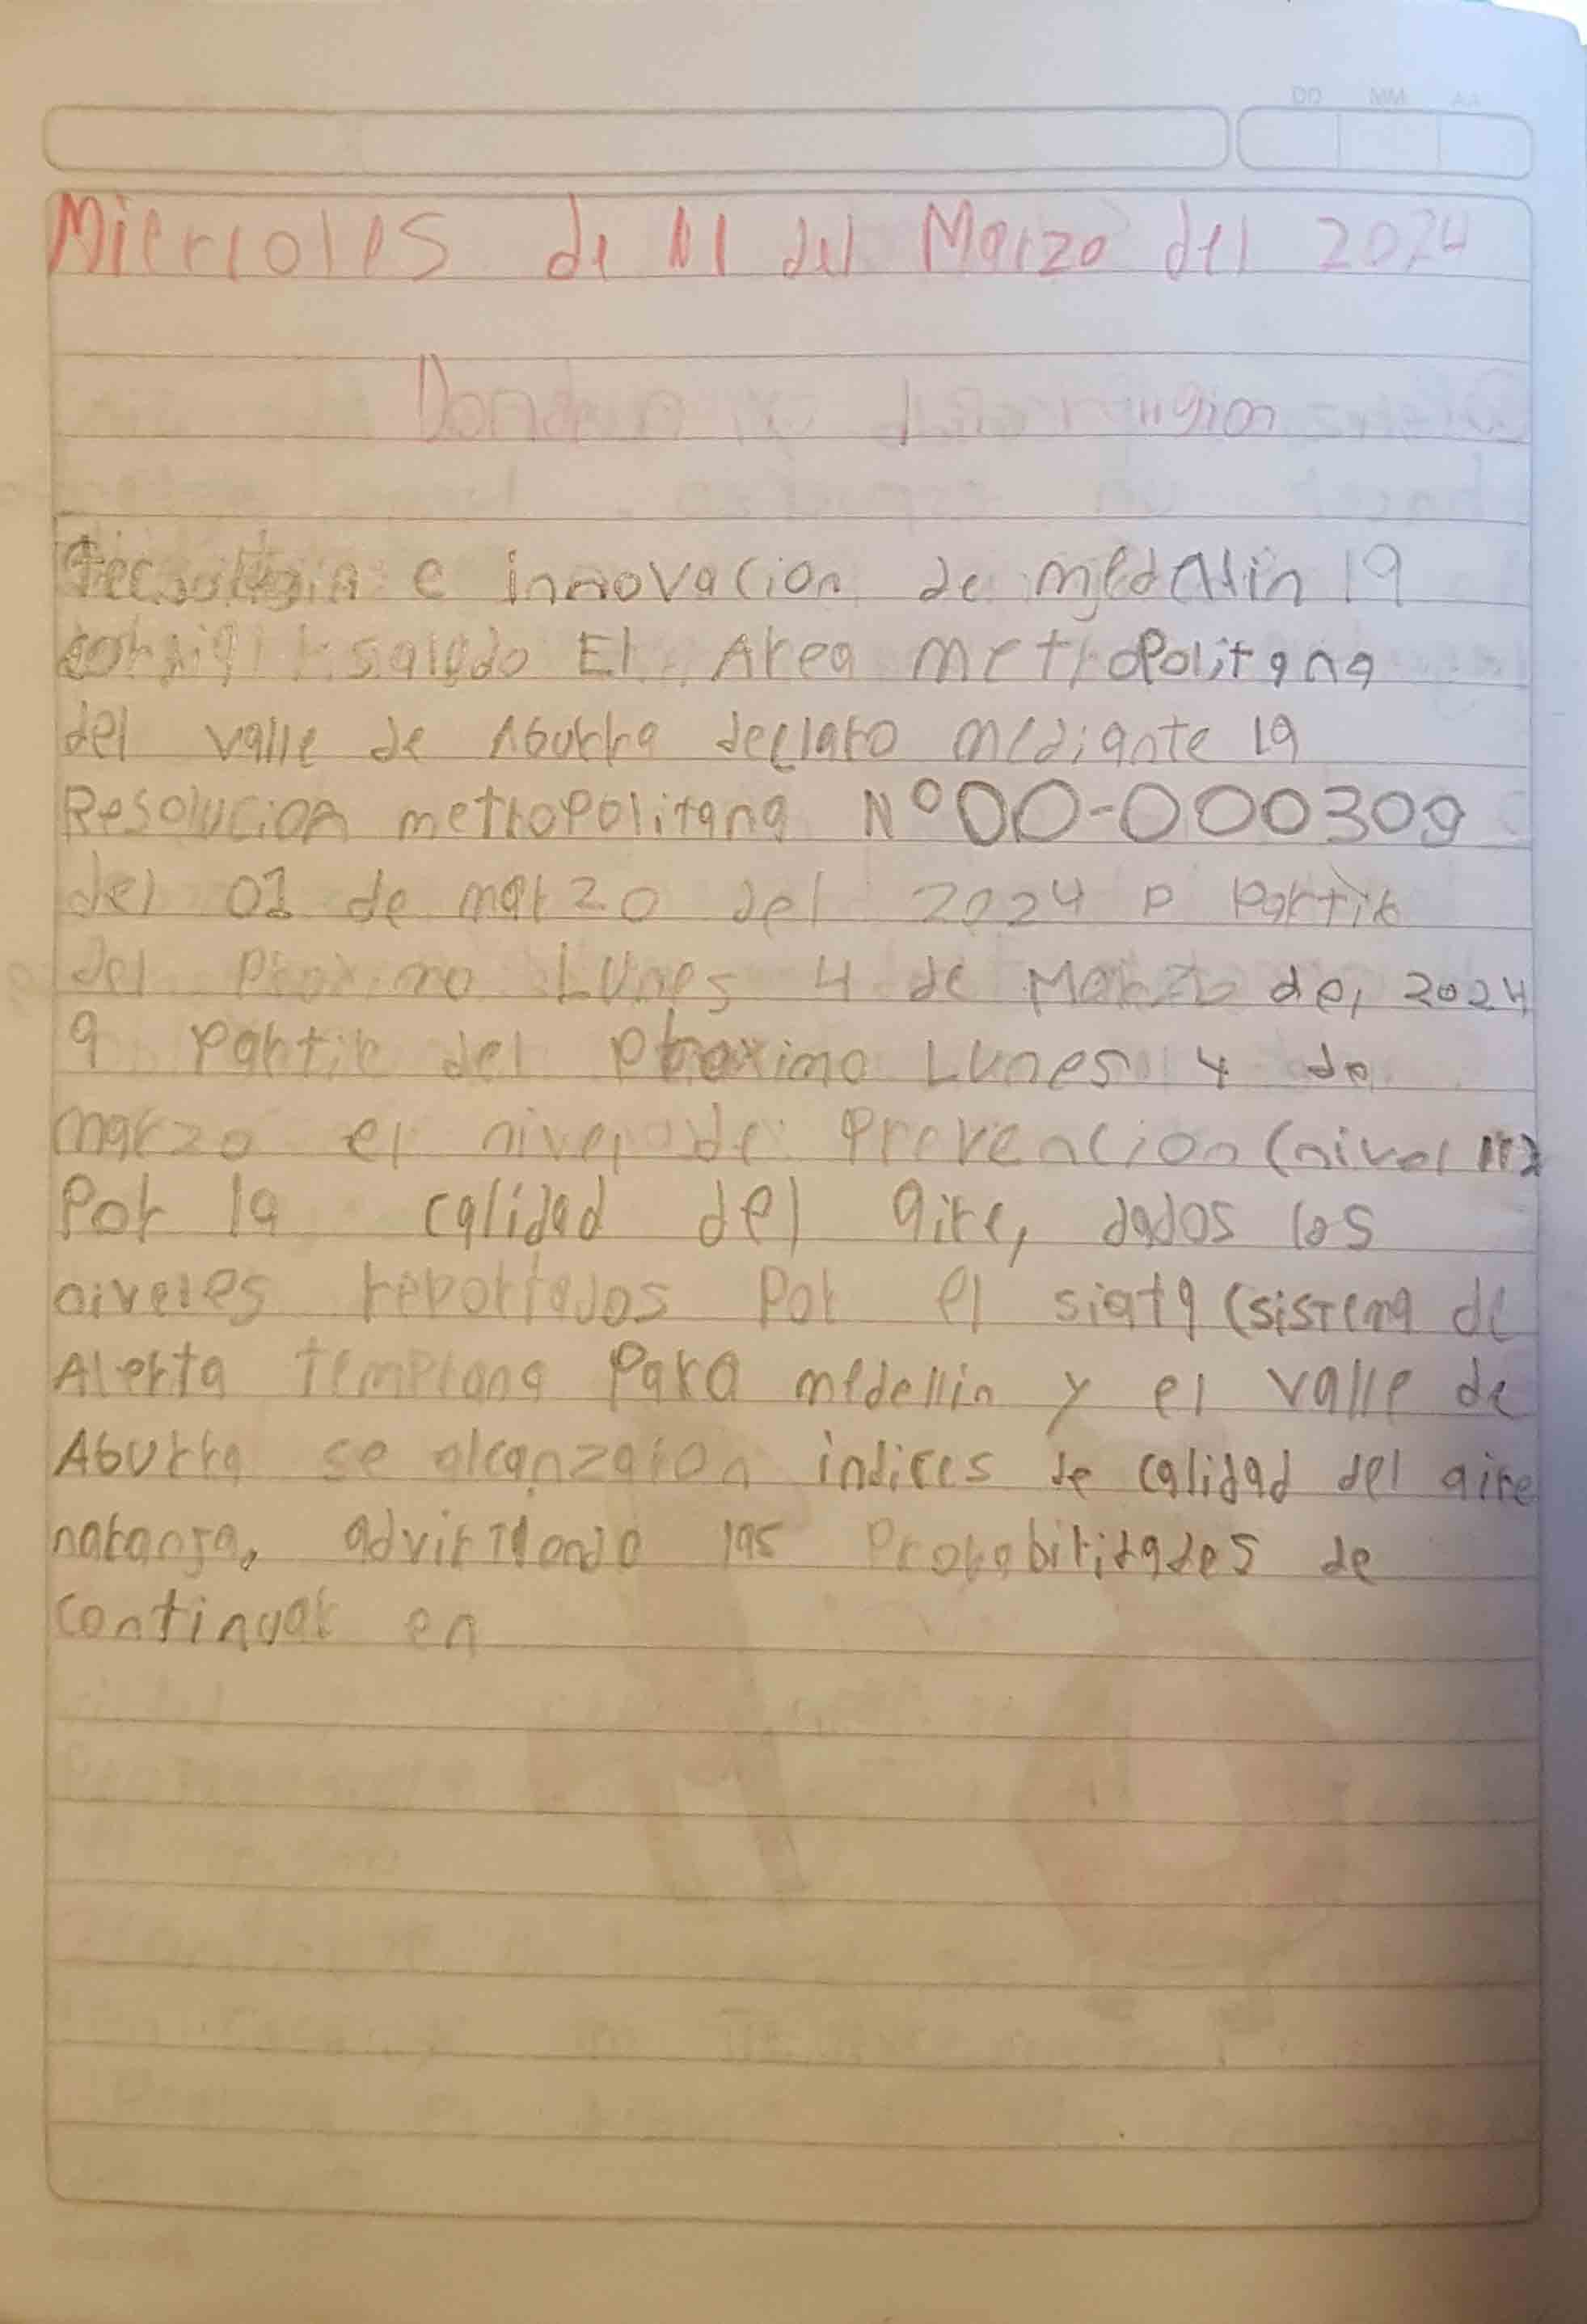 DD MM AA
Miercoles de 11 del Marzo del 2024
e innovacion de medellin la
saludo El Area metropolitana
del valle de Aburra declaro mediante la
Resolucion metropolitana N°00-000309
del 01 de marzo del 2024 a partir
del Proximo Lunes 4 de Marzo del 2024
a partir del proximo Lunes 4 de
marzo el nivel de Prevencion (nivel II)
Por la calidad del aire, dados los
niveles reportados Por el siata (sistema de
Alerta Temprana Para medellin y el valle de
Aburra se alcanzaron indices de calidad del aire
naranja, advirtiendo las Probabilidades de
continuar en